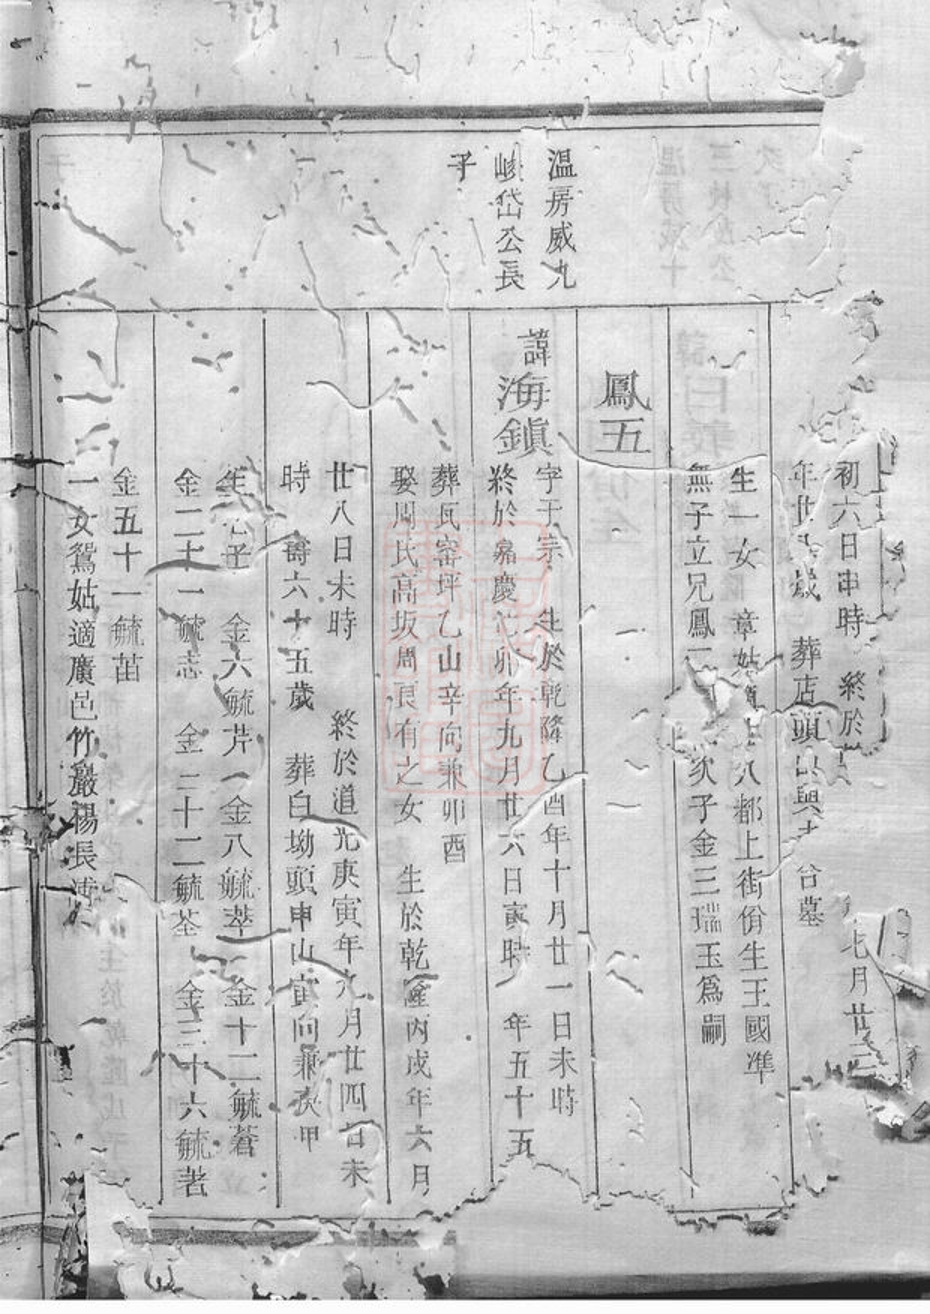 初六日申時 終於 七月廿三
年廿 歲 葬店頭 與 合墓
生一女 章姑 八都上街佾生王國準
無子立兄鳳 次子金三瑞玉為嗣
鳳五
溫房威九
峨岱公長
子
諱海鎮
字于宗 生於乾隆乙酉年十月廿一日未時
終於嘉慶己卯年九月廿六日寅時 年五十五
葬瓦窑坪乙山辛向兼卯酉
娶周氏高坂周良有之女 生於乾隆丙戌年六月
廿八日未時 終於道光庚寅年九月廿四日未
時 壽六十五歲 葬白坳頭申山寅向兼庚甲
生 子 金六毓芹 金八毓萃 金十二毓蒼
金二十一毓志 金二十二毓荃 金三十六毓著
金五十一毓苗
一女鴛姑適廣邑竹巖楊長